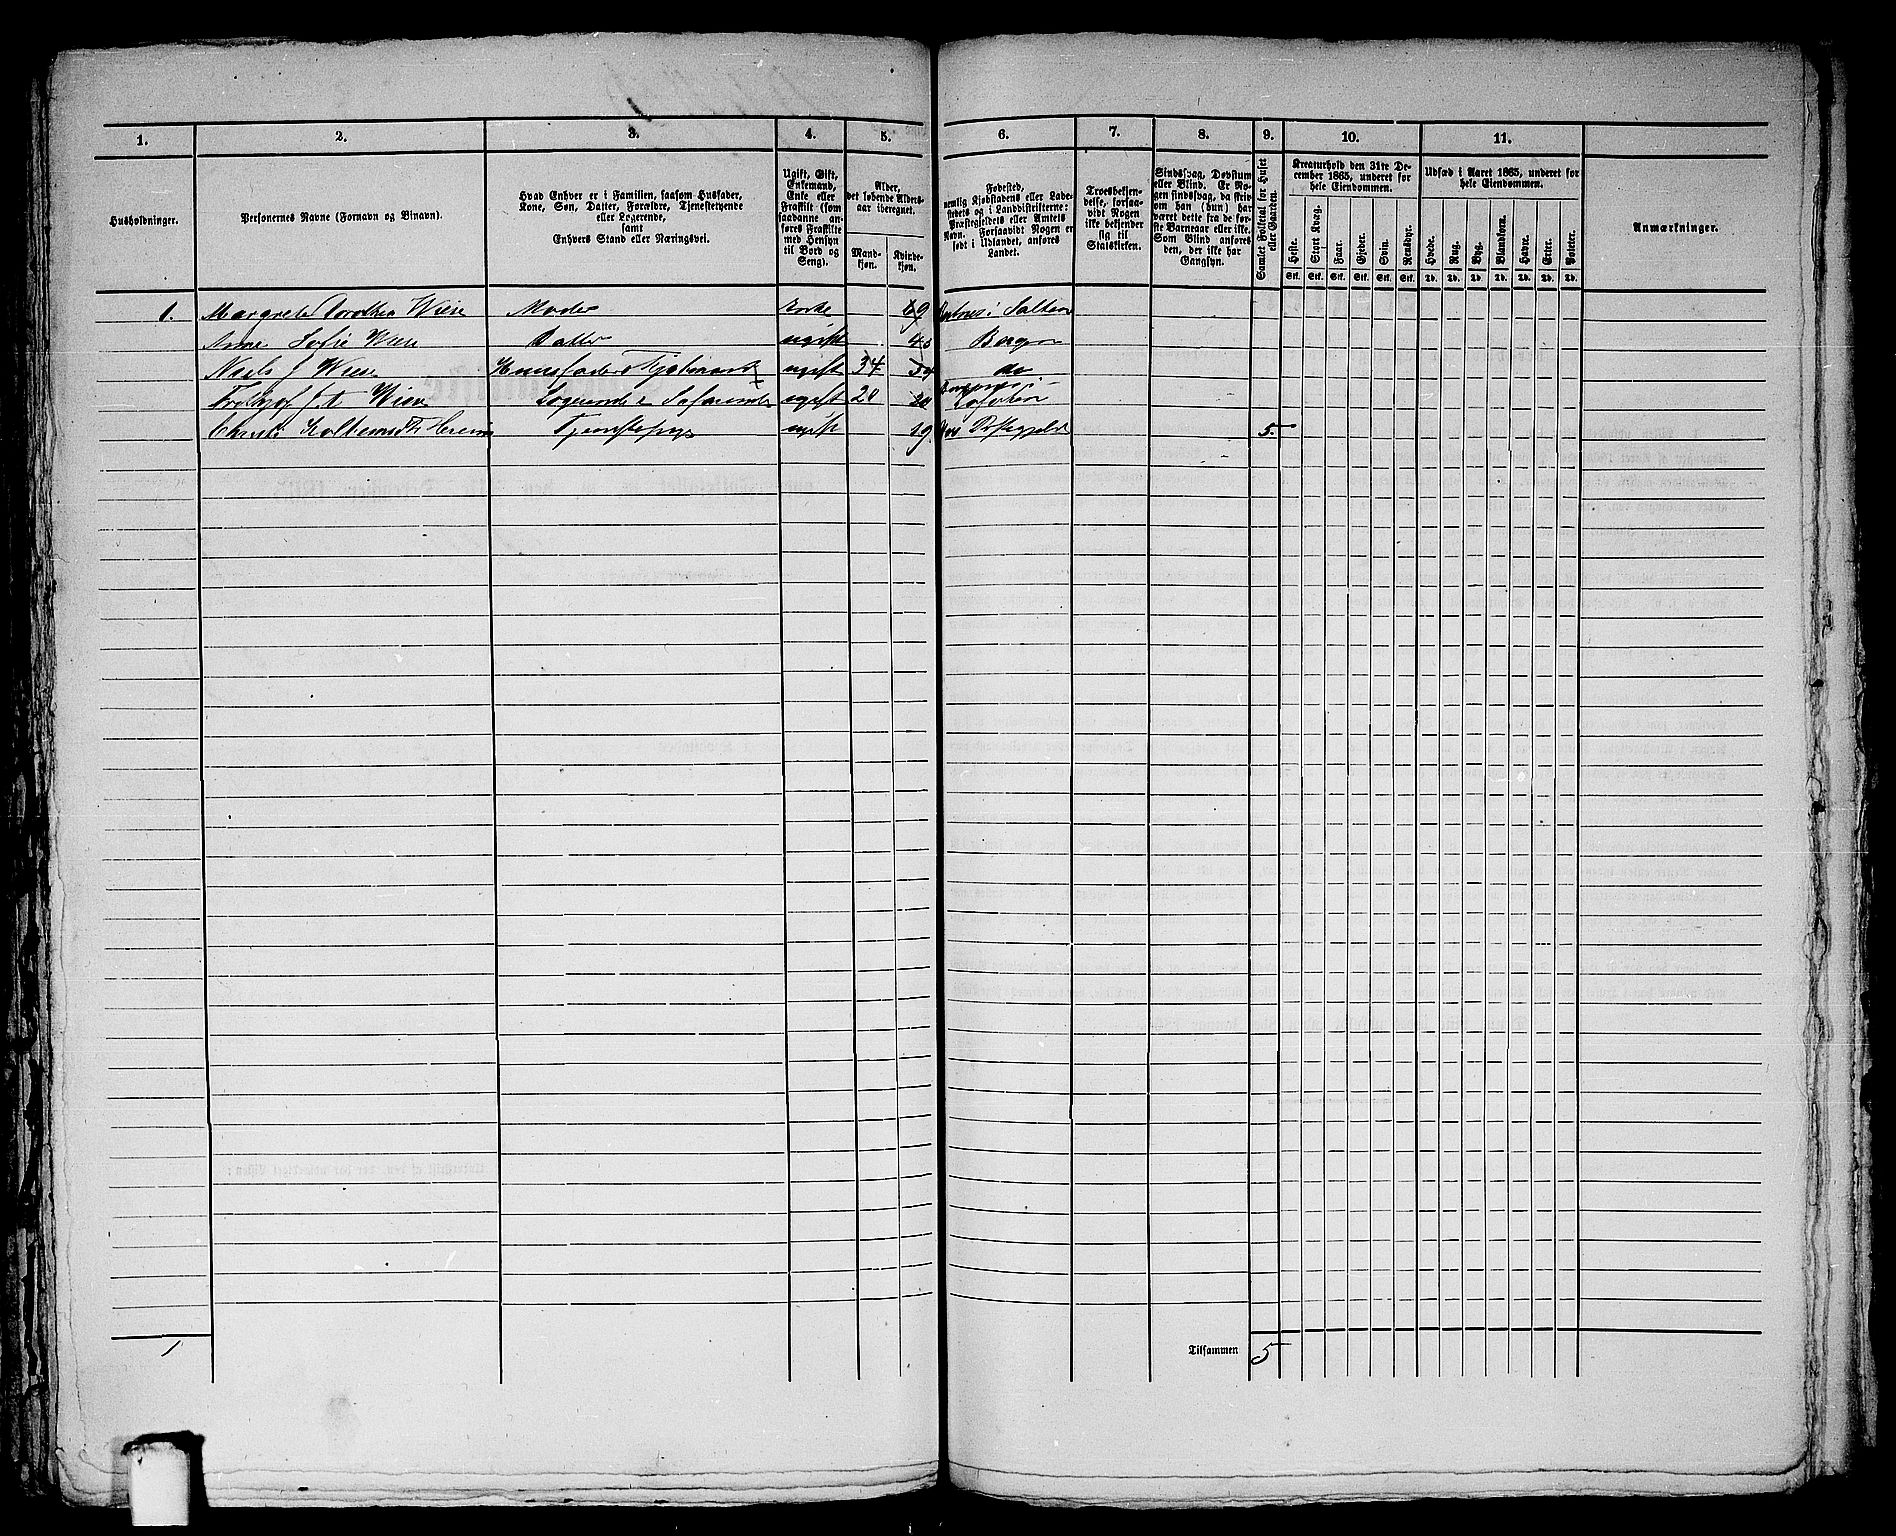 1. 2. 3. 4. 5. 6. 7. 8. 9. 10. 11.
Husholdninger.
Personernes Navne (Fornavn og Binavn).
Hvad Enhver er i Familien, saasom Husfader,
Kone, Søn, Datter, Forældre, Tjenestetyende
eller Logerende,
samt
Enhvers Stand eller Næringsvei.
Ugift, Gift,
Enkemand,
Enke eller
Fraskilt (som
saadanne an-
føres Fraskilte
med Hensyn
til Bord og
Seng).
Alder,
det løbende Alders-
aar iberegnet.
Mand-
kjøn.
Kvinde-
kjøn.
Fødested,
nemlig Kjøbstadens eller Lade-
stedets og i Landdistrikterne:
Præstegjeldets eller Amtets
Navn. Forsaavidt Nogen er
født i Udlandet, anføres
Landet.
Troesbekjen-
delse, forsaa-
vidt Nogen
ikke bekjender
sig til
Statskirken.
Sindssvag, Døvstum
eller Blind. Er No-
gen sindssvag, da skriv
om han (hun) har
været dette fra de før-
ste Barneaar eller ikke.
Som Blind anføres
den, der ikke har
Gangsyn.
Samlet Folketal for Huset
eller Gaarden.
Kreaturhold den 31te De-
cember 1865, underet for
hele Eiendommen.
Heste. Stort Kvæg. Faar. Gjeder. Svin. Rensdyr.
Stk. Stk. Stk. Stk. Stk. Stk.
Udsæd i Aaret 1865, underet for
hele Eiendommen.
Hvede. Rug. Byg. Blandkorn. Havre. Erter. Poteter.
Td. Td. Td. Td. Td. Td. Td.
Anmærkninger.
1. Margrete Dorothea Wiese Moder Enke 69 i Salten
Anne Sofie Wiese Datter ugift 40 Bergen
Niels J Wiese Huusfader ugift 34 do
Wiese Logerende ugift 20 Lofoten
Tjenestepige ugift 19 5.
1 Tilsammen 5